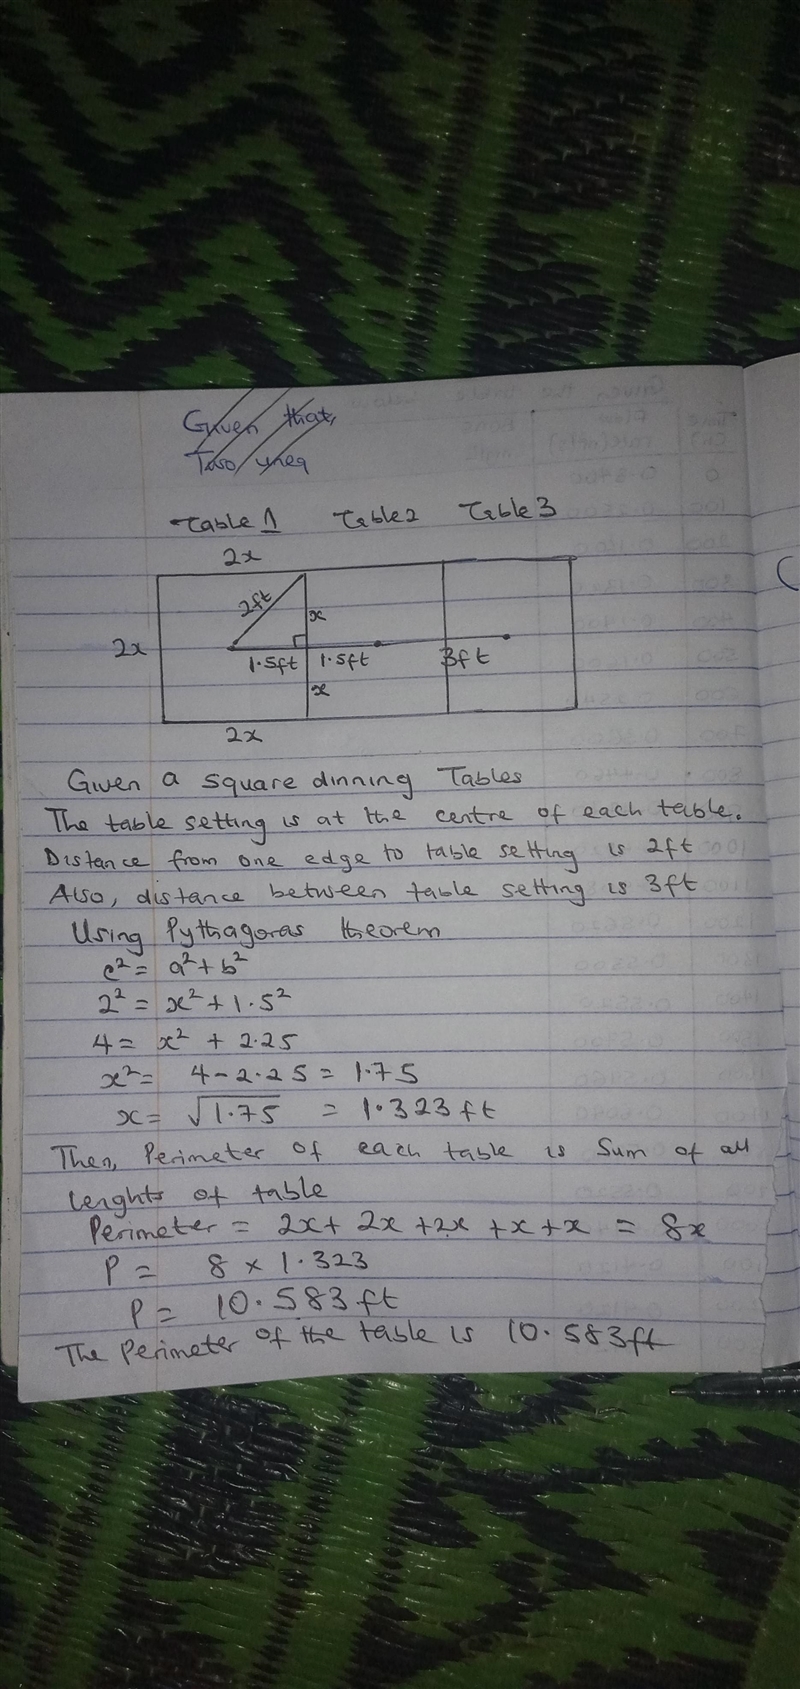 Given that,
Two uneq
Table 1 Table2 Table3
2x
2ft
x
2x
1.5ft 1.5ft 3ft
x
2x
Given a square dinning Tables
The table setting is at the centre of each table.
Distance from one edge to table setting is 2ft
Also, distance between table setting is 3ft
Using Pythagoras theorem
c² = a² + b²
2² = x² + 1.5²
4 = x² + 2.25
x² = 4 - 2.25 = 1.75
x = √1.75 = 1.323ft
Then, Perimeter of each table is Sum of all
lenghts of table
Perimeter = 2x + 2x + 2x + x + x = 8x
P = 8 × 1.323
P = 10.583ft
The Perimeter of the table is 10.583ft